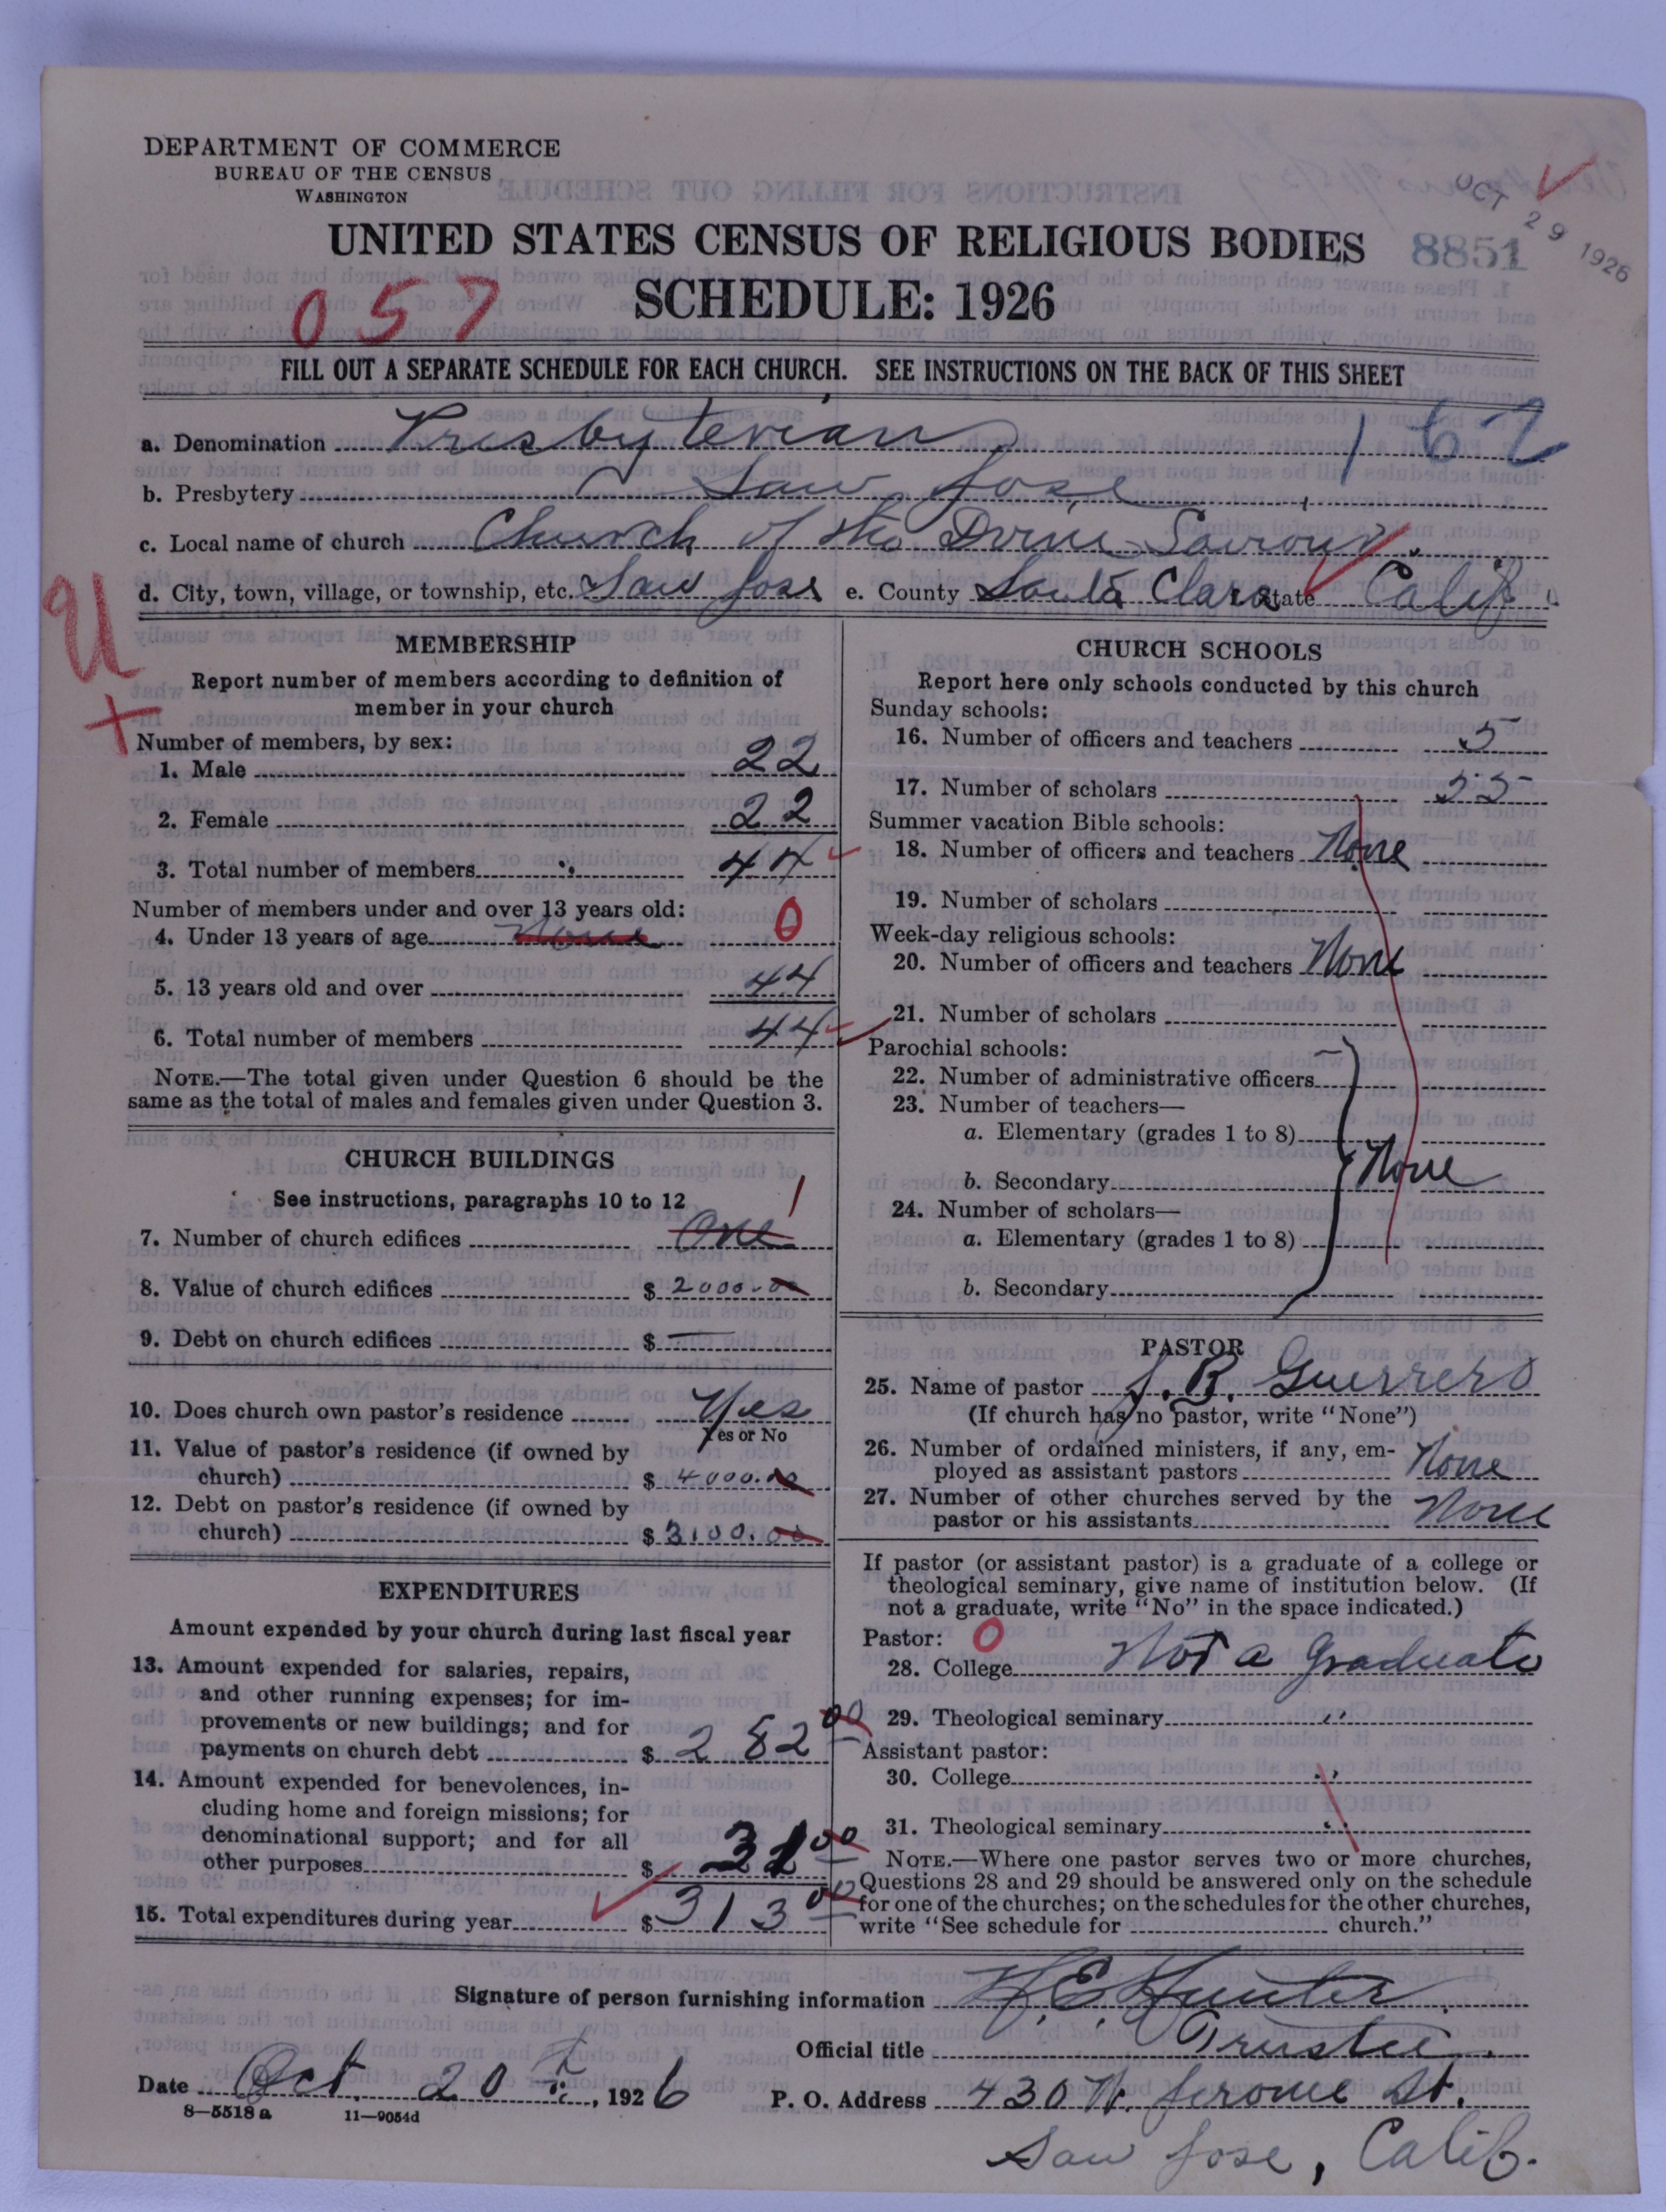 DEPARTMENT OF COMMERCE
BUREAU OF THE CENSUS
WASHINGTON
OCT 29 1926
UNITED STATES CENSUS OF RELIGIOUS BODIES 8851
057 SCHEDULE: 1926
FILL OUT A SEPARATE SCHEDULE FOR EACH CHURCH. SEE INSTRUCTIONS ON THE BACK OF THIS SHEET
a. Denomination Presbyterian 162
b. Presbytery San Jose
c. Local name of church Church of the Divine Saviour.
d. City, town, village, or township, etc. San Jose e. County Santa Clara State Calif
U
+
MEMBERSHIP
Report number of members according to definition of
member in your church
Number of members, by sex:
1. Male 22
2. Female 22
3. Total number of members 44
Number of members under and over 13 years old:
4. Under 13 years of age None 0
5. 13 years old and over 44
6. Total number of members 44
NOTE.—The total given under Question 6 should be the
same as the total of males and females given under Question 3.
CHURCH BUILDINGS
See instructions, paragraphs 10 to 12
7. Number of church edifices One 1
8. Value of church edifices $ 2000.00
9. Debt on church edifices $ —
10. Does church own pastor's residence Yes
Yes or No
11. Value of pastor's residence (if owned by
church) $ 4000.00
12. Debt on pastor's residence (if owned by
church) $ 3100.00
EXPENDITURES
Amount expended by your church during last fiscal year
13. Amount expended for salaries, repairs,
and other running expenses; for im-
provements or new buildings; and for
payments on church debt $ 282 00
14. Amount expended for benevolences, in-
cluding home and foreign missions; for
denominational support; and for all
other purposes $ 31 00
15. Total expenditures during year $ 313 00
CHURCH SCHOOLS
Report here only schools conducted by this church
Sunday schools:
16. Number of officers and teachers 5
17. Number of scholars 55
Summer vacation Bible schools:
18. Number of officers and teachers None
19. Number of scholars
Week-day religious schools:
20. Number of officers and teachers None
21. Number of scholars
Parochial schools:
22. Number of administrative officers
23. Number of teachers—
a. Elementary (grades 1 to 8)
b. Secondary None
24. Number of scholars—
a. Elementary (grades 1 to 8)
b. Secondary
PASTOR
25. Name of pastor J. B. Guerrero
(If church has no pastor, write "None")
26. Number of ordained ministers, if any, em-
ployed as assistant pastors None
27. Number of other churches served by the
pastor or his assistants None
If pastor (or assistant pastor) is a graduate of a college or
theological seminary, give name of institution below. (If
not a graduate, write "No" in the space indicated.)
Pastor: 0
28. College Not a Graduate
29. Theological seminary "
Assistant pastor:
30. College "
31. Theological seminary "
NOTE.—Where one pastor serves two or more churches,
Questions 28 and 29 should be answered only on the schedule
for one of the churches; on the schedules for the other churches,
write "See schedule for church."
Signature of person furnishing information H. E. Hunter
Official title Trustee.
Date Oct. 20th, 1926 P. O. Address 430 N. Jerome St.
8—5518a 11—9054d
San Jose, Calif.